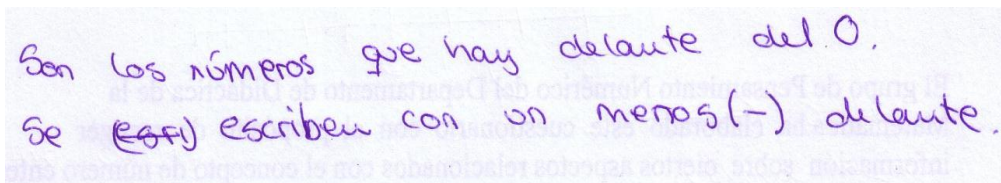 Son los números que hay delante del 0.
Se (esr) escriben con un menos (-) delante.